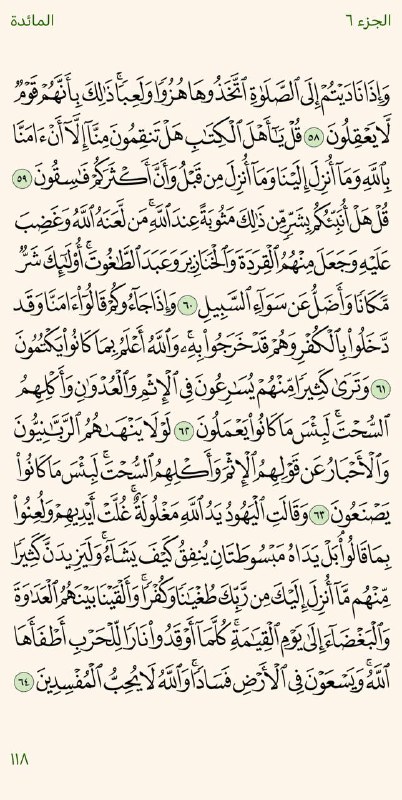 الجزء ٦
المائدة
وَإِذَا نَادَيْتُمْ إِلَى ٱلصَّلَوٰةِ ٱتَّخَذُوهَا هُزُوًا وَلَعِبًا ۚ ذَٰلِكَ بِأَنَّهُمْ قَوْمٌ
لَّا يَعْقِلُونَ ٥٨ قُلْ يَٰٓأَهْلَ ٱلْكِتَٰبِ هَلْ تَنقِمُونَ مِنَّآ إِلَّآ أَنْ ءَامَنَّا
بِٱللَّهِ وَمَآ أُنزِلَ إِلَيْنَا وَمَآ أُنزِلَ مِن قَبْلُ وَأَنَّ أَكْثَرَكُمْ فَٰسِقُونَ ٥٩
قُلْ هَلْ أُنَبِّئُكُم بِشَرٍّ مِّن ذَٰلِكَ مَثُوبَةً عِندَ ٱللَّهِ ۚ مَن لَّعَنَهُ ٱللَّهُ وَغَضِبَ
عَلَيْهِ وَجَعَلَ مِنْهُمُ ٱلْقِرَدَةَ وَٱلْخَنَازِيرَ وَعَبَدَ ٱلطَّٰغُوتَ ۚ أُو۟لَٰٓئِكَ شَرٌّ
مَّكَانًا وَأَضَلُّ عَن سَوَآءِ ٱلسَّبِيلِ ٦٠ وَإِذَا جَآءُوكُمْ قَالُوٓا۟ ءَامَنَّا وَقَد
دَّخَلُوا۟ بِٱلْكُفْرِ وَهُمْ قَدْ خَرَجُوا۟ بِهِۦ ۚ وَٱللَّهُ أَعْلَمُ بِمَا كَانُوا۟ يَكْتُمُونَ
٦١ وَتَرَىٰ كَثِيرًا مِّنْهُمْ يُسَٰرِعُونَ فِى ٱلْإِثْمِ وَٱلْعُدْوَٰنِ وَأَكْلِهِمُ
ٱلسُّحْتَ ۚ لَبِئْسَ مَا كَانُوا۟ يَعْمَلُونَ ٦٢ لَوْلَا يَنْهَىٰهُمُ ٱلرَّبَّٰنِيُّونَ
وَٱلْأَحْبَارُ عَن قَوْلِهِمُ ٱلْإِثْمَ وَأَكْلِهِمُ ٱلسُّحْتَ ۚ لَبِئْسَ مَا كَانُوا۟
يَصْنَعُونَ ٦٣ وَقَالَتِ ٱلْيَهُودُ يَدُ ٱللَّهِ مَغْلُولَةٌ ۚ غُلَّتْ أَيْدِيهِمْ وَلُعِنُوا۟
بِمَا قَالُوا۟ ۘ بَلْ يَدَاهُ مَبْسُوطَتَانِ يُنفِقُ كَيْفَ يَشَآءُ ۚ وَلَيَزِيدَنَّ كَثِيرًا
مِّنْهُم مَّآ أُنزِلَ إِلَيْكَ مِن رَّبِّكَ طُغْيَٰنًا وَكُفْرًا ۚ وَأَلْقَيْنَا بَيْنَهُمُ ٱلْعَدَٰوَةَ
وَٱلْبَغْضَآءَ إِلَىٰ يَوْمِ ٱلْقِيَٰمَةِ ۚ كُلَّمَآ أَوْقَدُوا۟ نَارًا لِّلْحَرْبِ أَطْفَأَهَا
ٱللَّهُ ۚ وَيَسْعَوْنَ فِى ٱلْأَرْضِ فَسَادًا ۚ وَٱللَّهُ لَا يُحِبُّ ٱلْمُفْسِدِينَ ٦٤
١١٨